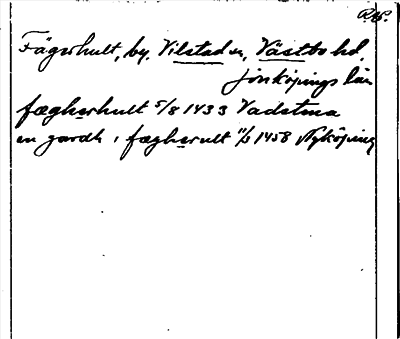 RAp.
Fägerhult, by. Vilstad sn, Västbo hd,
Jönköpings län
fægherhult 5/8 1433 Vadstena
en gardh i fægherult 11/3 1458 Nyköping